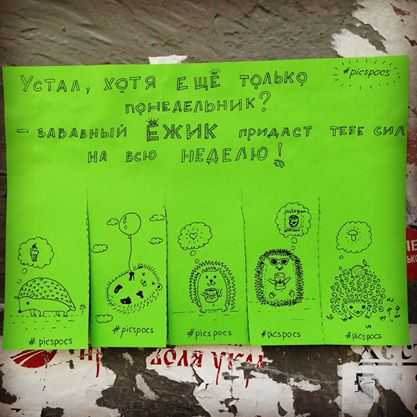 #picspocs
УСТАЛ, ХОТЯ ЕЩЁ ТОЛЬКО
ПОНЕДЕЛЬНИК?
- ЗАБАВНЫЙ ЁЖИК ПРИДАСТ ТЕБЕ СИЛ
НА ВСЮ НЕДЕЛЮ!
#picspocs
#picspocs
#picspocs
#picspocs
#picspocs